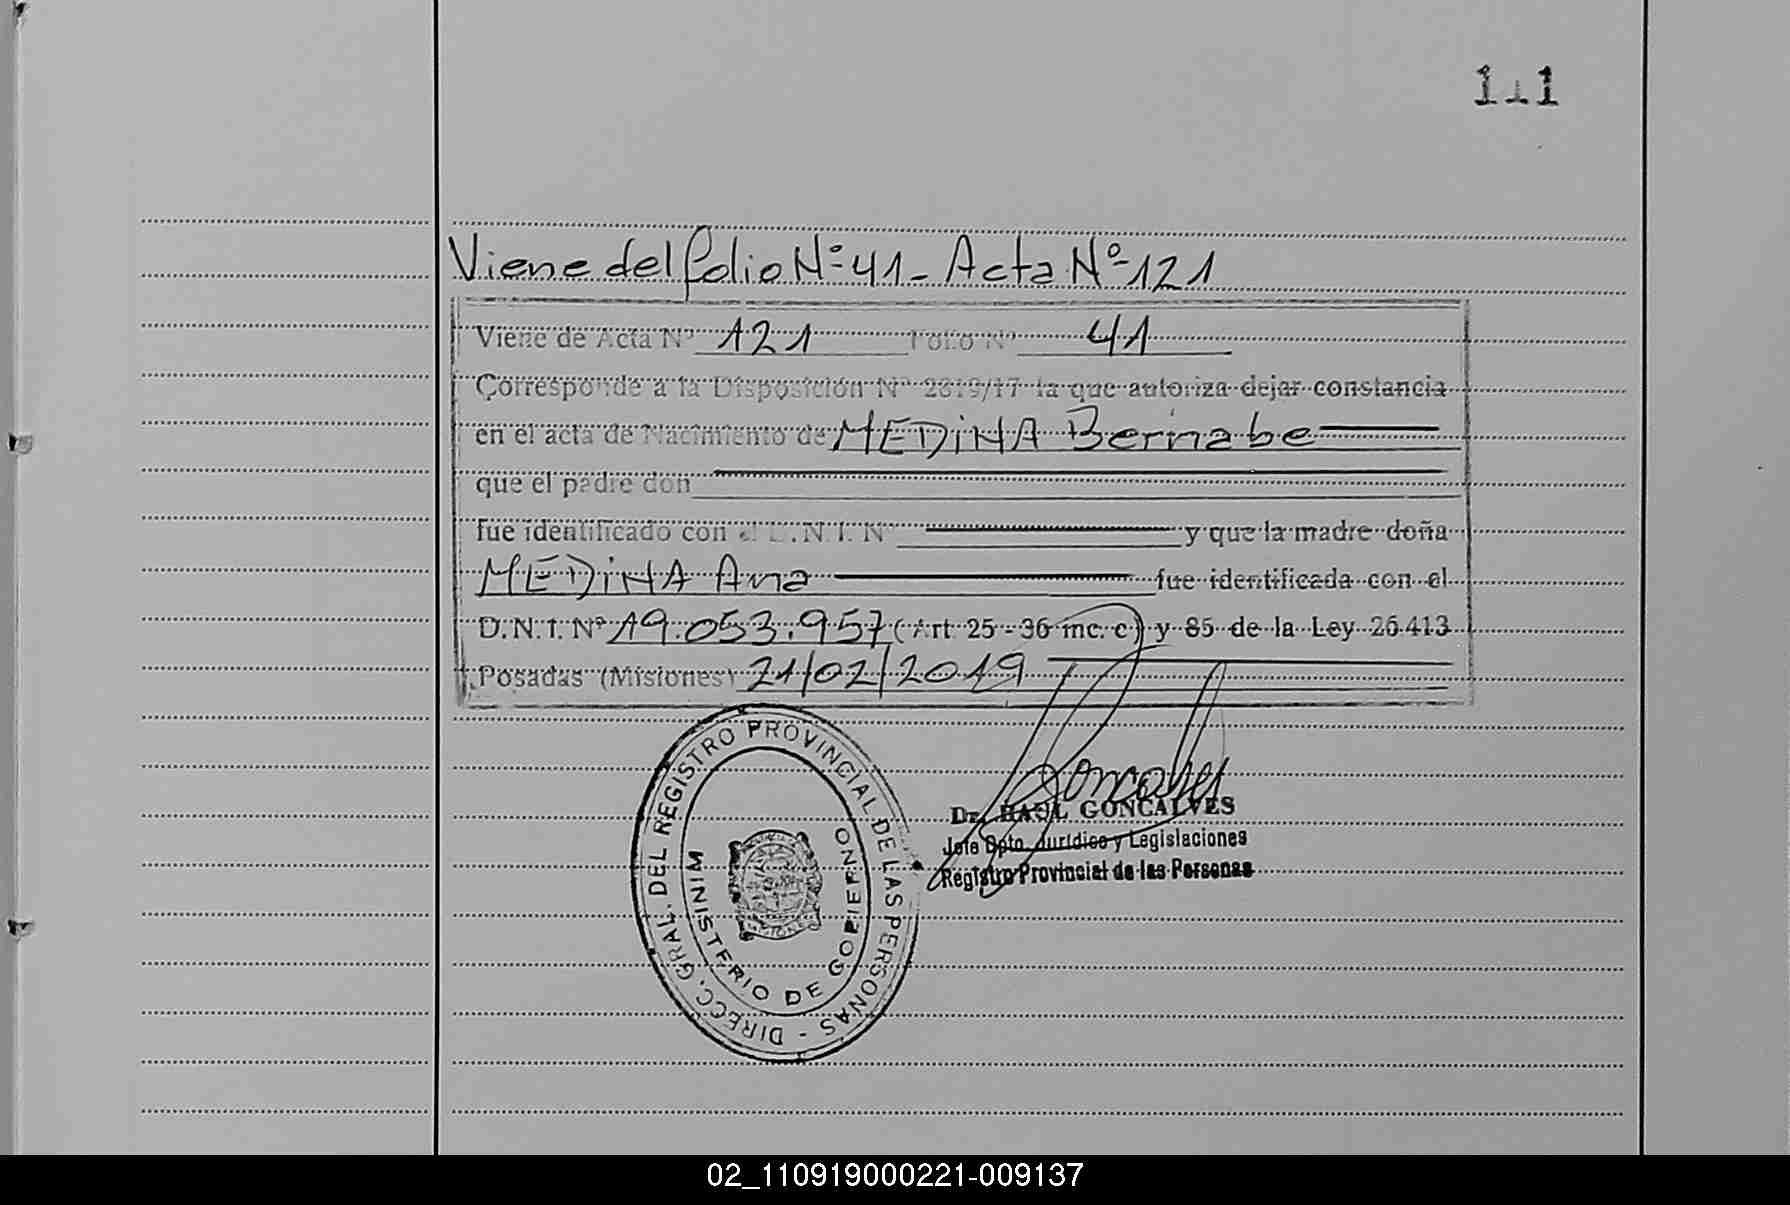 111
Viene del folio Nº 41 - Acta Nº 121
Viene de Acta Nº 121 Folio Nº 41
Corresponde a la Disposición Nº 2819/17 la que autoriza dejar constancia
en el acta de Nacimiento de MEDINA Bernabe
que el padre don
fue identificado con el D.N.I. Nº y que la madre doña
MEDINA Ana fue identificada con el
D.N.I. Nº 19.053.957 (Art. 25 - 36 inc. c) y 85 de la Ley 26.413
Posadas (Misiones) 21/02/2019
DIRECC. GRAL. DEL REGISTRO PROVINCIAL DE LAS PERSONAS -
MINISTERIO DE GOBIERNO
MISIONES
Goncalves
Dr. RAUL GONCALVES
Jefe Dpto. Jurídico y Legislaciones
Registro Provincial de las Personas
02_110919000221-009137